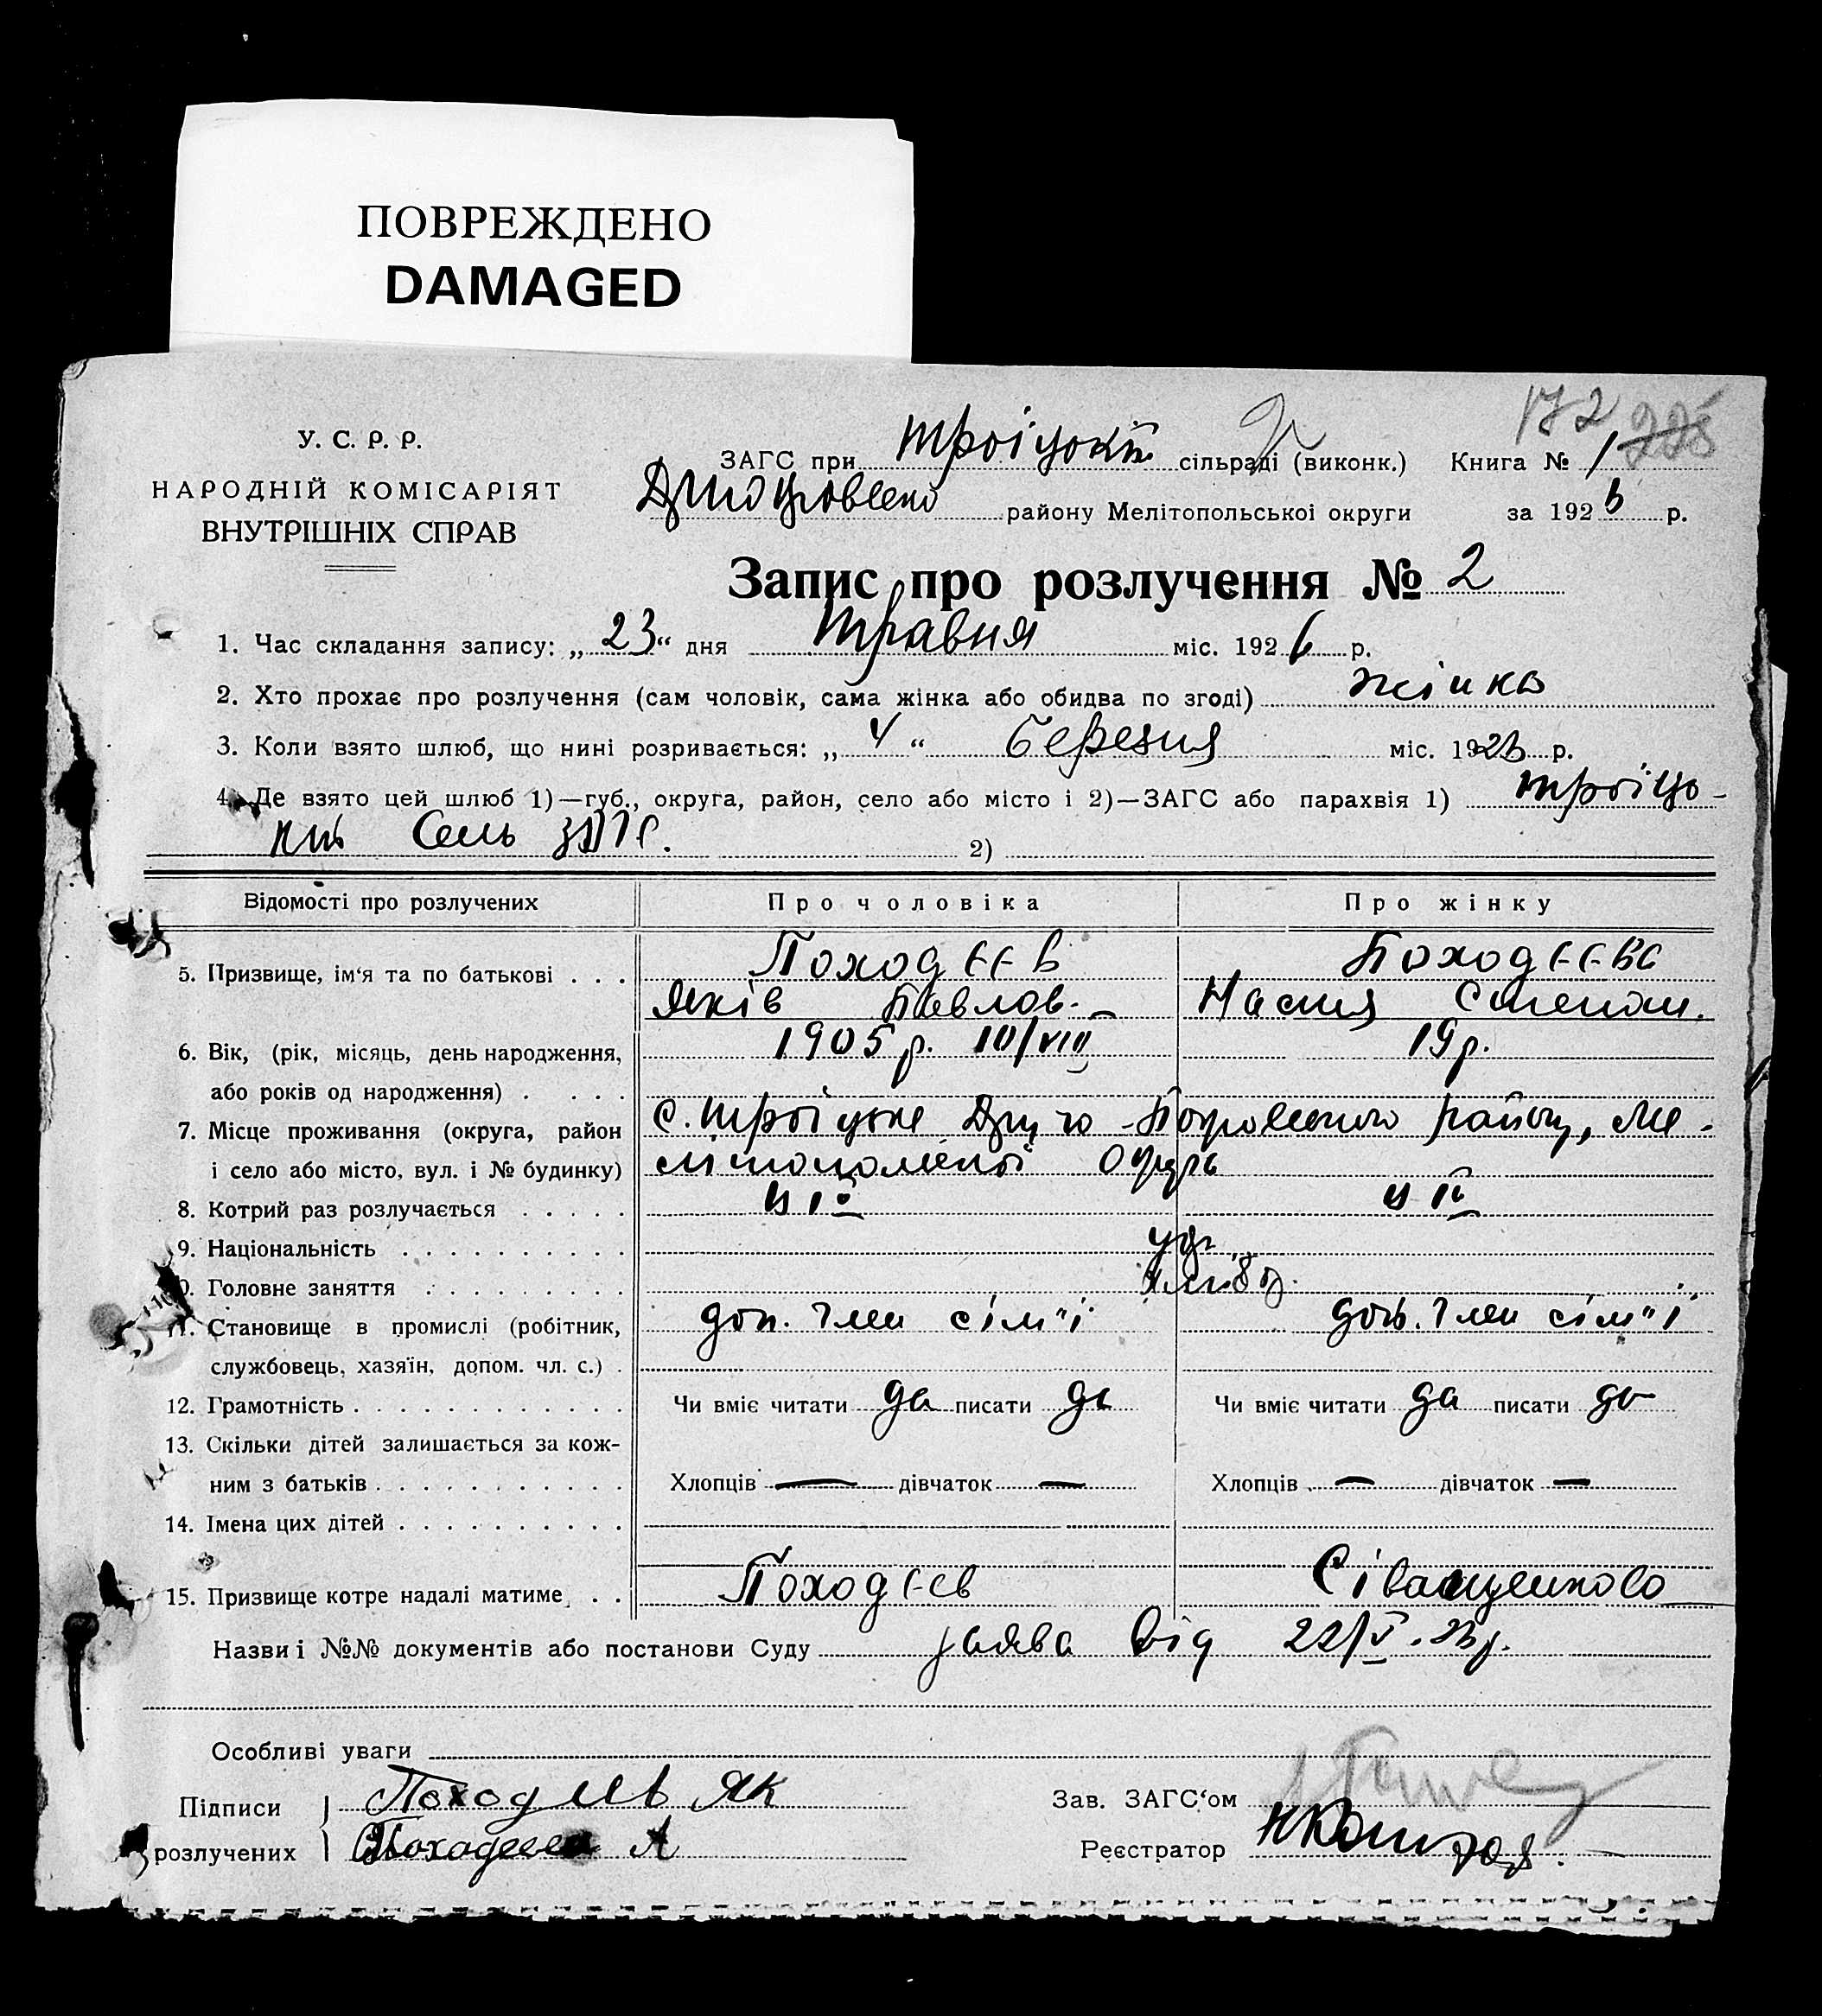 ПОВРЕЖДЕНО
DAMAGED
172 228
У. С. Р. Р.
НАРОДНІЙ КОМІСАРІЯТ
ВНУТРІШНІХ СПРАВ
ЗАГС при Троіцокій сільраді (виконк.) Книга № 1
району Мелітопольської округи за 1926 р.
Запис про розлучення № 2
1. Час складання запису: „23“ дня Травня міс. 1926 р.
2. Хто прохає про розлучення (сам чоловік, сама жінка або обидва по згоді) жінка
3. Коли взято шлюб, що нині розривається: „4“ березня міс. 1926 р.
4. Де взято цей шлюб 1)—губ., округа, район, село або місто і 2)—ЗАГС або парахвія 1) Троіцо-
кий Сель ЗАГС. 2)
Відомості про розлучених Про чоловіка Про жінку
5. Призвище, ім‘я та по батькові . . . Походєєв Походєєва
Яків Павлов. Настя Степан.
6. Вік, (рік, місяць, день народження, 1905 р. 10/VIII 19 р.
або років од народження) . . . .
7. Місце проживання (округа, район с. Троіцьке району, Ме-
і село або місто, вул. і № будинку) літопольської Округи
8. Котрий раз розлучається . . . . . І І
9. Національність . . . . . . . . . . укр.
Головне заняття . . . . . . . . . хлібор.
11. Становище в промислі (робітник, доп. член сім"ї доп. член сім"ї
службовець, хазяїн, допом. чл. с.) .
12. Грамотність . . . . . . . . . . . . Чи вміє читати да писати да Чи вміє читати да писати да
13. Скільки дітей залишається за кож-
ним з батьків . . . . . . . . . . . Хлопців — дівчаток — Хлопців — дівчаток —
14. Імена цих дітей . . . . . . . . . .
15. Призвище котре надалі матиме . . Походєєв Сіващенково
Назви і №№ документів або постанови Суду заява від 22/V.26 р.
Особливі уваги
Підписи Походєєв Як Зав. ЗАГС‘ом
розлучених Походеева А Реєстратор